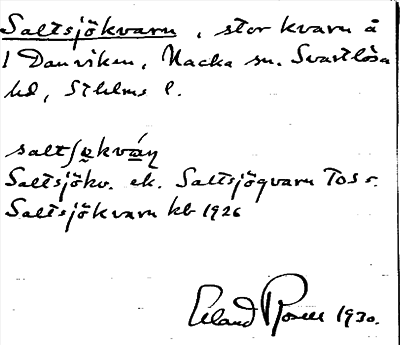 Saltsjökvarn, stor kvarn å
1 Danviken, Nacka sn. Svartlösa
hd, Sthlms l.
saltʃøkvɑ́ɳ
Saltsjökv. ek. Saltsjöqvarn TOS r.
Saltsjökvarn kb 1926
Erland Rosell 1930.